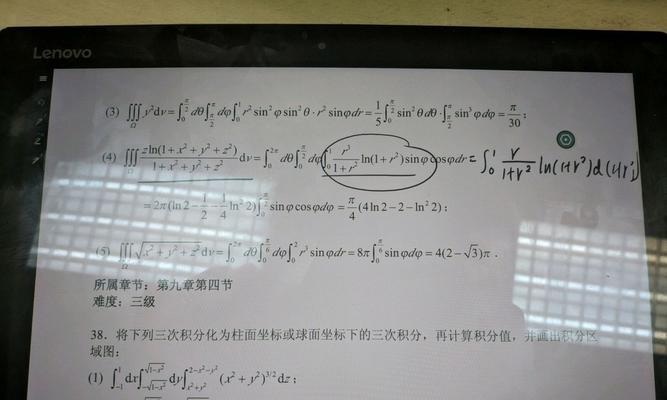 Lenovo
(3) ∭_Ω y²dv = ∫_0^{π/2} dθ ∫_{π/2}^{π} dφ ∫_0^1 r² sin²φ sin²θ · r² sinφ dr = 1/5 ∫_0^{π/2} sin²θ dθ · ∫_{π/2}^{π} sin³φ dφ = π/30 ;
(4) ∭_Ω z ln(1+x²+y²+z²)/(1+x²+y²+z²) dv = ∫_0^{2π} dθ ∫_0^{π/2} dφ ∫_0^1 r³/(1+r²) ln(1+r²) sinφ cosφ dr = ∫_0^1 r/(1+r²) ln(1+r²) d(1+r²)
= 2π(ln2 − 1/2 − 1/4 ln²2) ∫_0^{π/2} sinφ cosφ dφ = π/4 (4ln2 − 2 − ln²2) ;
(5) ∭_Ω √(x²+y²+z²) dv = ∫_0^{2π} dθ ∫_0^{π/6} dφ ∫_0^2 r³ sinφ dr = 8π ∫_0^{π/6} sinφ dφ = 4(2−√3)π .
所属章节：第九章第四节
难度：三级
38. 将下列三次积分化为柱面坐标或球面坐标下的三次积分，再计算积分值，并画出积分区
域图：
(1) ∫_{-1}^{1} dx ∫_{-√(1-x²)}^{√(1-x²)} dy ∫_{x²+y²}^{2-x²-y²} (x²+y²)^{3/2} dz ;